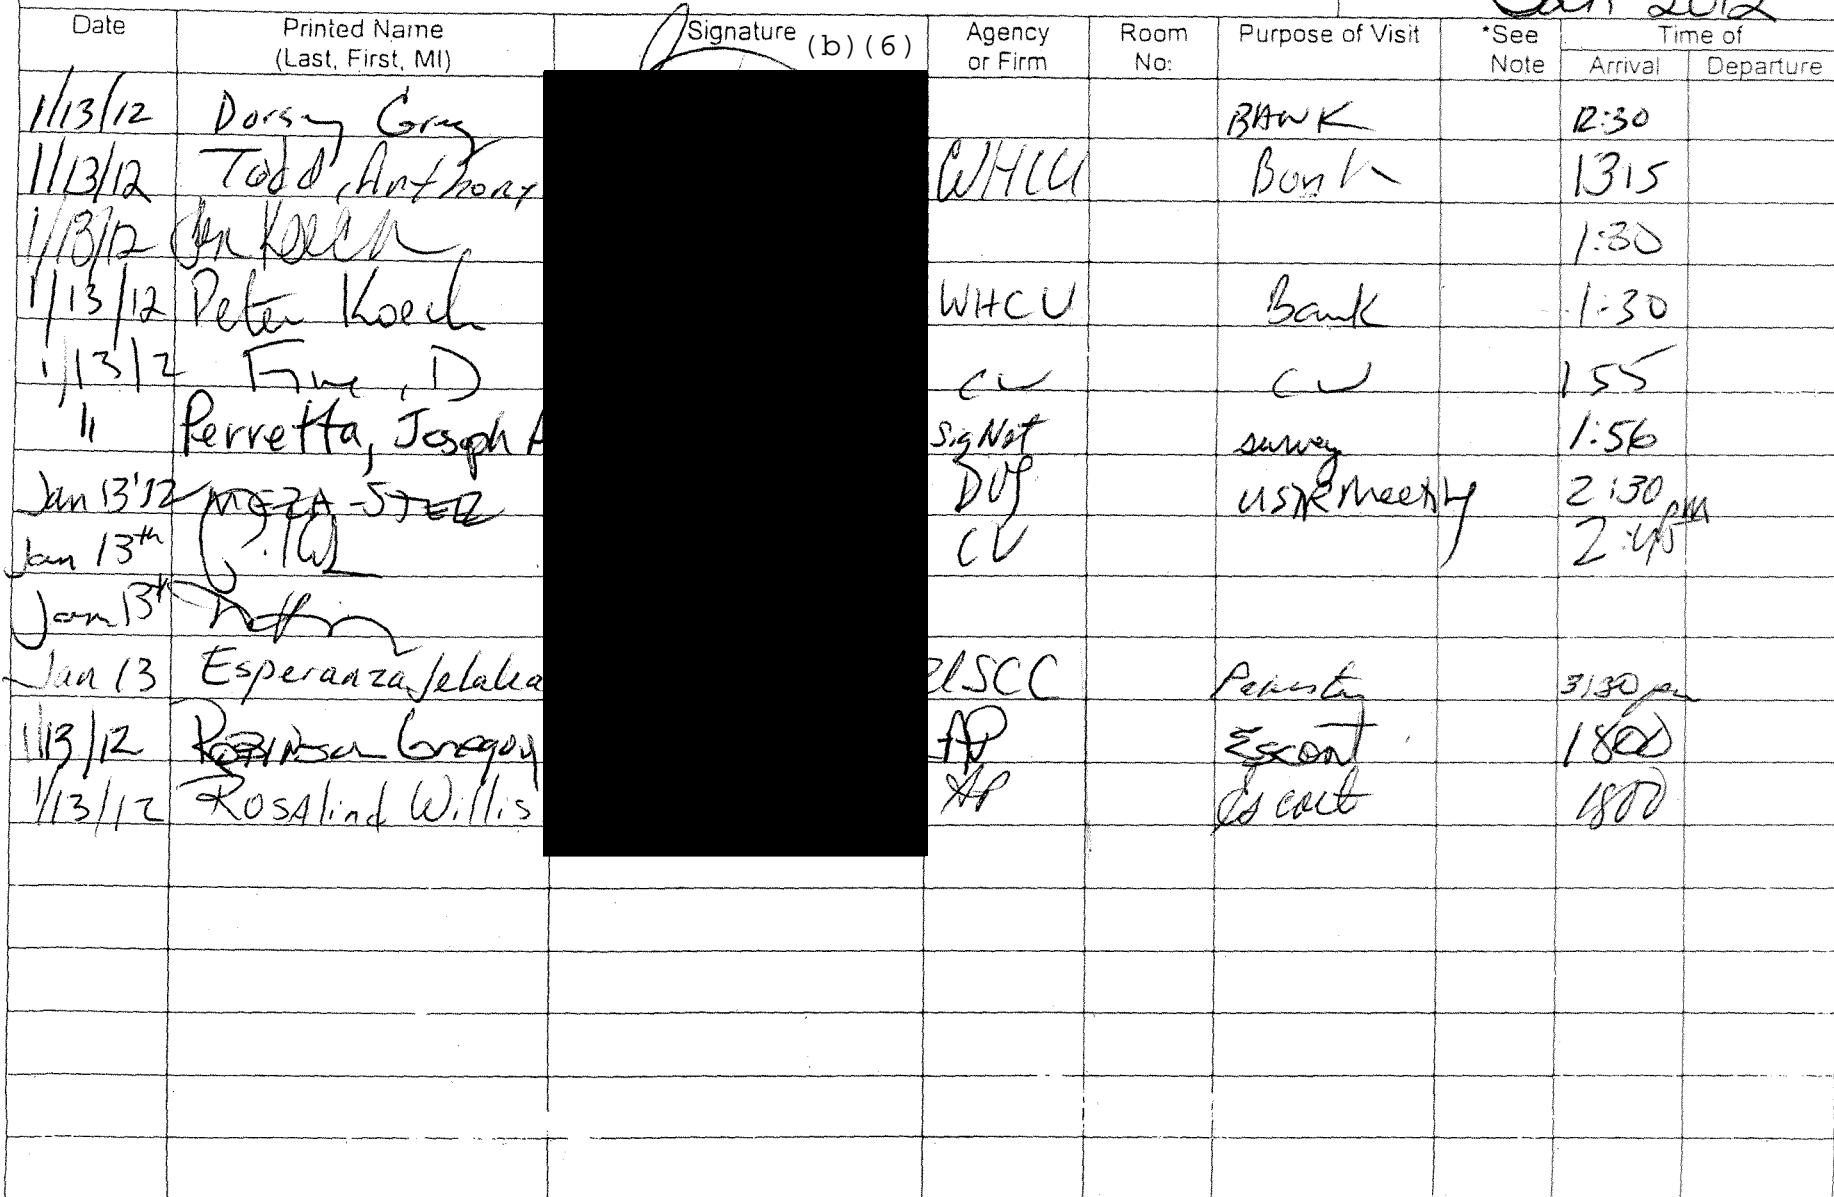 Jan 2012
Date Printed Name Signature (b)(6) Agency Room Purpose of Visit *See Time of
(Last, First, MI) or Firm No: Note Arrival Departure
1/13/12 Dorsey Greg BANK 12:30
1/13/12 Todd, Anthony WHCU Bank 1315
1/13/12 Koech 1:30
1/13/12 Peter Koech WHCU Bank 1:30
1/13/12 , D CU CU 155
" Perretta, Joseph A SigNet survey 1:56
Jan 13'12 MEZA-STEEL USTR Meeting 2:30 pm
Jan 13th CU 2:45
Jan 13th
Jan 13 Esperanza Jelalia USCC 3:30 pm
1/13/12 Robinson Gregory AP Escort 1800
1/13/12 Rosalind Willis AP Escort 1800